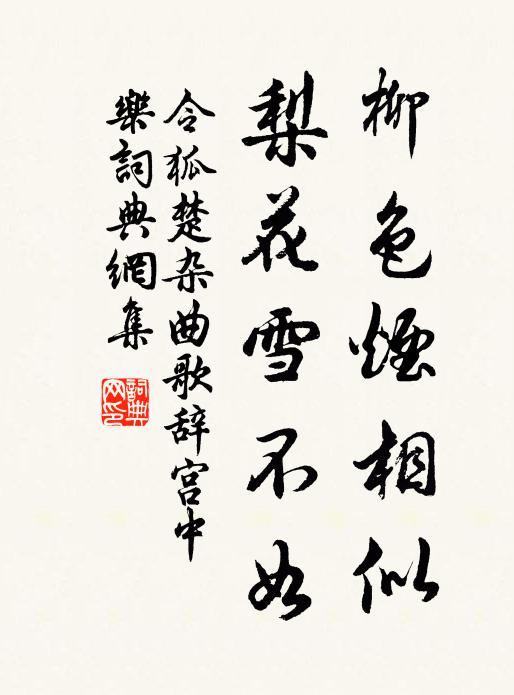 柳色煙相似
梨花雪不如
令狐楚杂曲歌辞宫中
樂詞典網集
詞典
网印